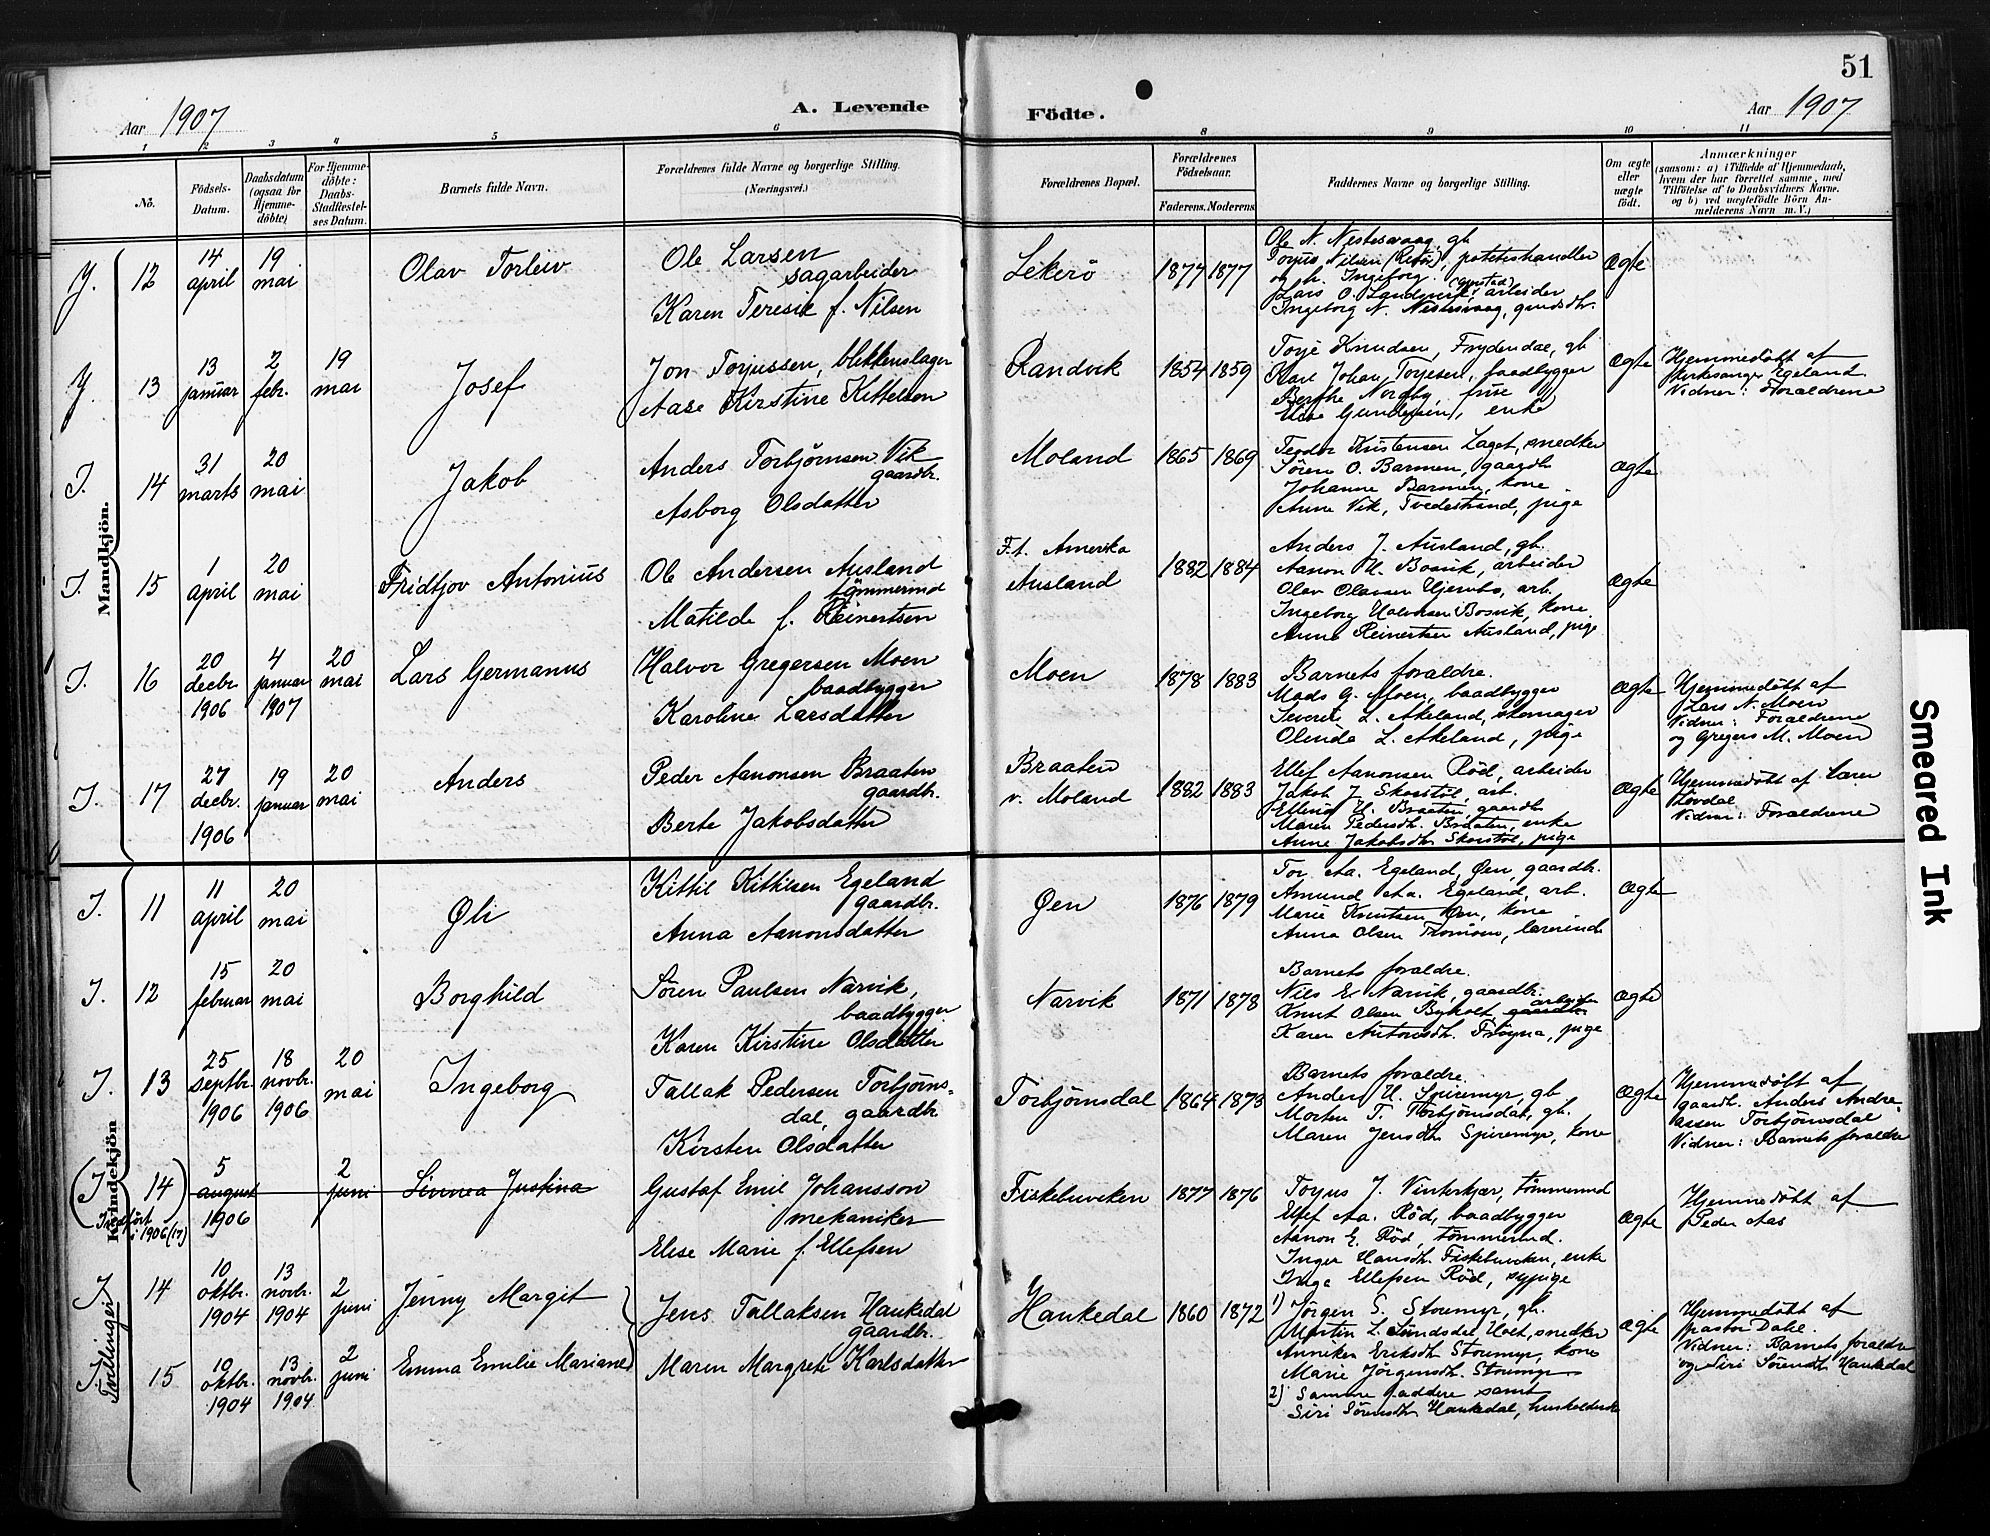 51
Aar 1907
A. Levende
Födte.
Aar 1907
1 2 3 4 5 6 8 9 10 11
No.
Födsels-
Datum.
Daabsdatum
(ogsaa for
Hjemme-
döbte)
For Hjemme-
döbte:
Daabs
Stadfæstel-
ses Datum.
Barnets fulde Navn.
Forældrenes fulde Navne og borgerlige Stilling.
(Næringsvei.)
Forældrenes Bopæl.
Forældrenes
Födselsaar.
Faderens. Moderens.
Faddernes Navne og borgerlige Stilling.
Om ægte
eller
uægte
födt.
Anmærkninger
(saasom: a) i Tilfælde af Hjemmedaab,
hvem der har forrettet samme, med
Tilföielse af to Daabsvidners Navne.
og b) ved uægtefödte Börn An-
melderens Navn m. V.)
Mandkjön.
Y. 12
14
april
19
mai
Olav Torleiv
Ole Larsen
sagarbeider
Karen Teresie f. Nilsen
Lekerö
1877 1877
Ole N. Nestesvaag, gb.
Torjus Nilsen potetishandler
og h. Ingeborg
Lars O. Landverk, arbeider
Ingeborg N. Nestesvaag, gaardsdtr.
Ægte
Y. 13
13
januar
2
febr.
19
mai
Josef
Jon Torjussen, blikkenslager
Aase Kirstine Kittelson
Randvik
1854 1859
Torje Knudsen, Frydendal, gb.
Karl Johan Torjesen, baadbygger
Berthe Nordby, frue
Elise Gundersen, enke
Ægte
Hjemmedøbt af
kirkesanger Egeland
Vidner: Forældrene
I. 14
31
marts
20
mai
Jakob
Anders Torbjørnsen Vik
gaardbr.
Asborg Olsdatter
Moland
1865 1869
Teodor Kristensen Laget, snedker
Søren O. Barmen, gaardb.
Johanne Barmen, kone
Anne Vik, Tvedestrand, pige
Ægte
I. 15
1
april
20
mai
Fridtjov Antonius
Ole Andersen Ausland
tømmermd
Matilde f. Reinertsen
F.t. Amerika
Ausland
1882 1884
Anders J. Ausland, gb.
Aanon H. Bosvik, arbeider
Olav Olavsen Hjembø, arb.
Ingeborg Halvorsen Bosvik, kone
Anna Reinertsen Ausland, pige
Ægte
I. 16
20
decbr.
1906
4
januar
1907
20
mai
Lars Germanus
Halvor Gregersen Moen
baadbygger
Karoline Larsdatter
Moen
1878 1883
Barnets forældre.
Mads G. Moen, baadbygger
Severin L. Akeland, skomager
Olinda L. Akeland, pige
Ægte
Hjemmedøbt af
Lars N. Moen
Vidner: Forældrene
og Gregers M. Moen
I. 17
27
decbr.
1906
19
januar
20
mai
Anders
Peder Aanonsen Braaten
gaardb.
Berte Jakobsdatter
Braaten
v. Moland
1882 1883
Ellef Aanonsen Röd, arbeider
Jakob J. Skorstöl, arb.
Braaten, gaardb.
Maren Pedersdtr. Braaten, enke
Anne Jakobsdtr. Skorstöl, pige
Ægte
Hjemmedøbt af lærer
Løvdal
Vidner: Forældrene
Kvindekjön
I. 11
11
april
20
mai
Øli
Kittil Kittilsen Egeland
gaardbr.
Anna Aanonsdatter
Øen
1876 1879
Tor Aa. Egeland, Øen, gaardbr.
Amund Aa. Egeland, arb.
Marie Knutsen Øen, kone
Anna Olsen Tromøen, lærerinde
Ægte
I. 12
15
februar
20
mai
Borghild
Søren Paulsen Narvik,
baadbygger
Karen Kirstine Olsdatter
Narvik
1871 1878
Barnets forældre.
Nils E. Narvik, gaardbr.
Knut Olsen Bykolt, gaardbr. arbeider
Karen Antonsdtr. Frøyna, pige
Ægte
I. 13
25
septbr.
1906
18
novbr.
1906
20
mai
Ingeborg
Tallak Pedersen Torbjørns-
dal, gaardbr.
Kirsten Olsdatter
Torbjørnsdal
1864 1873
Barnets forældre.
Anders H. Spiremyr, gb
Morten T. Torbjørnsdal, gb.
Maren Jensdtr. Spiremyr, kone
Ægte
Hjemmedøbt af
gaardb. Anders Andre-
assen Torbjørnsdal
Vidner: Barnets forældre
(I. 14)
Indført
i 1906 (17)
5
august
1906
2
juni
Linnea Justina
Gustaf Emil Johansson
mekaniker
Elise Marie f. Ellefsen
Fiskebuviken
1877 1876
Torjus J. Vinterkjær, tømmermd
Ellef Aa. Röd, baadbygger
Aanon E. Röd, tømmermd.
Inger Hansdtr. Fiskebuviken, enke
Inga Ellefsen Röd, sypige
Ægte
Hjemmedøbt af
Peder Aas
Tvillinger
I. 14
10
oktbr.
1904
13
novbr.
1904
2
juni
Jenny Margit
Jens Tallaksen Haukedal
gaardbr.
Maren Margrete Karlsdatter
Haukedal
1860 1872
1) Jørgen S. Storemyr, gb.
Morten L. Sundsdal, Holt, snedker
Anniken Eriksdtr. Storemyr, kone
Marie Jørgensdtr. Storemyr
2) Samme faddere samt
Siri Sørensdtr. Haukedal, husholderske
Ægte
Hjemmedøbt af
pastor Dahl.
Vidner: Barnets forældre
og Siri Sørensdtr Haukedal
I. 15
10
oktbr.
1904
13
novbr.
1904
2
juni
Emma Emilie Mariane
Smeared Ink